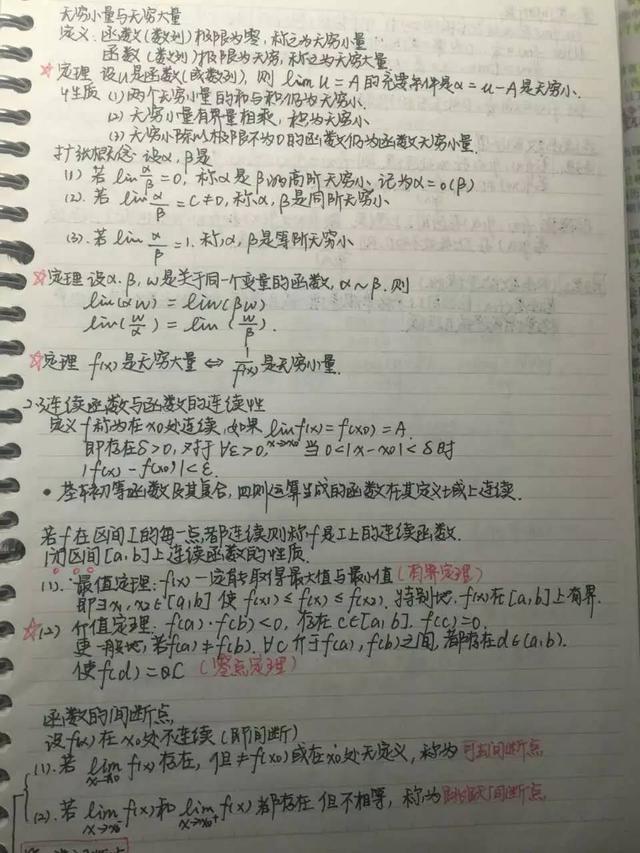 无穷小量与无穷大量
定义. 函数(数列)极限为零, 称之为无穷小量
函数(数列)极限为无穷, 称之为无穷大量
☆定理 设u是函数(或数列), 则 lim u = A 的充要条件是α = u-A是无穷小.
性质 (1) 两个无穷小量的和与积仍为无穷小.
(2) 无穷小量有界量相乘, 积为无穷小
(3) 无穷小除以极限不为0的函数仍为函数无穷小量.
扩张概念: 设α, β是
(1) 若 lim α/β = 0, 称α是β的高阶无穷小, 记为α = o(β)
(2). 若 lim α/β = C ≠ 0, 称α, β是同阶无穷小
(3). 若 lim α/β = 1. 称α, β是等阶无穷小
☆定理 设α. β, w是关于同一个变量的函数, α ~ β. 则
lim(αw) = lim(βw)
lim(w/α) = lim (w/β).
☆定理 f(x)是无穷大量 ⇔ 1/f(x) 是无穷小量.
2.3连续函数与函数的连续性
定义 f 称为在x0处连续, 如果 lim x→x0 f(x) = f(x0) = A.
即存在δ>0, 对于∀ε>0, 当 0<|x-x0|<δ时
|f(x) - f(x0)| < ε.
• 基本初等函数及其复合, 四则运算生成的函数在其定义域上连续.
若f在区间I的每一点都连续则称f是I上的连续函数.
闭区间[a,b]上连续函数的性质.
(1). 最值定理: f(x)一定能取得最大值与最小值(有界定理)
即∃x1, x2∈[a,b] 使 f(x1) ≤ f(x) ≤ f(x2). 特别地, f(x)在[a,b]上有界.
☆(2) 介值定理. f(a)·f(b)<0, 存在 c∈[a,b]. f(c)=0.
更一般地, 若f(a)≠f(b). ∀C介于f(a), f(b)之间, 都存在d∈(a,b).
使f(d)=C (零点定理)
函数的间断点
设f(x)在x0处不连续(即间断)
(1). 若 lim x→x0 f(x)存在, 但≠f(x0)或在x0处无定义, 称为可去间断点
(2). 若 lim x→x0- f(x)和 lim x→x0+ f(x)都存在但不相等, 称为跳跃间断点